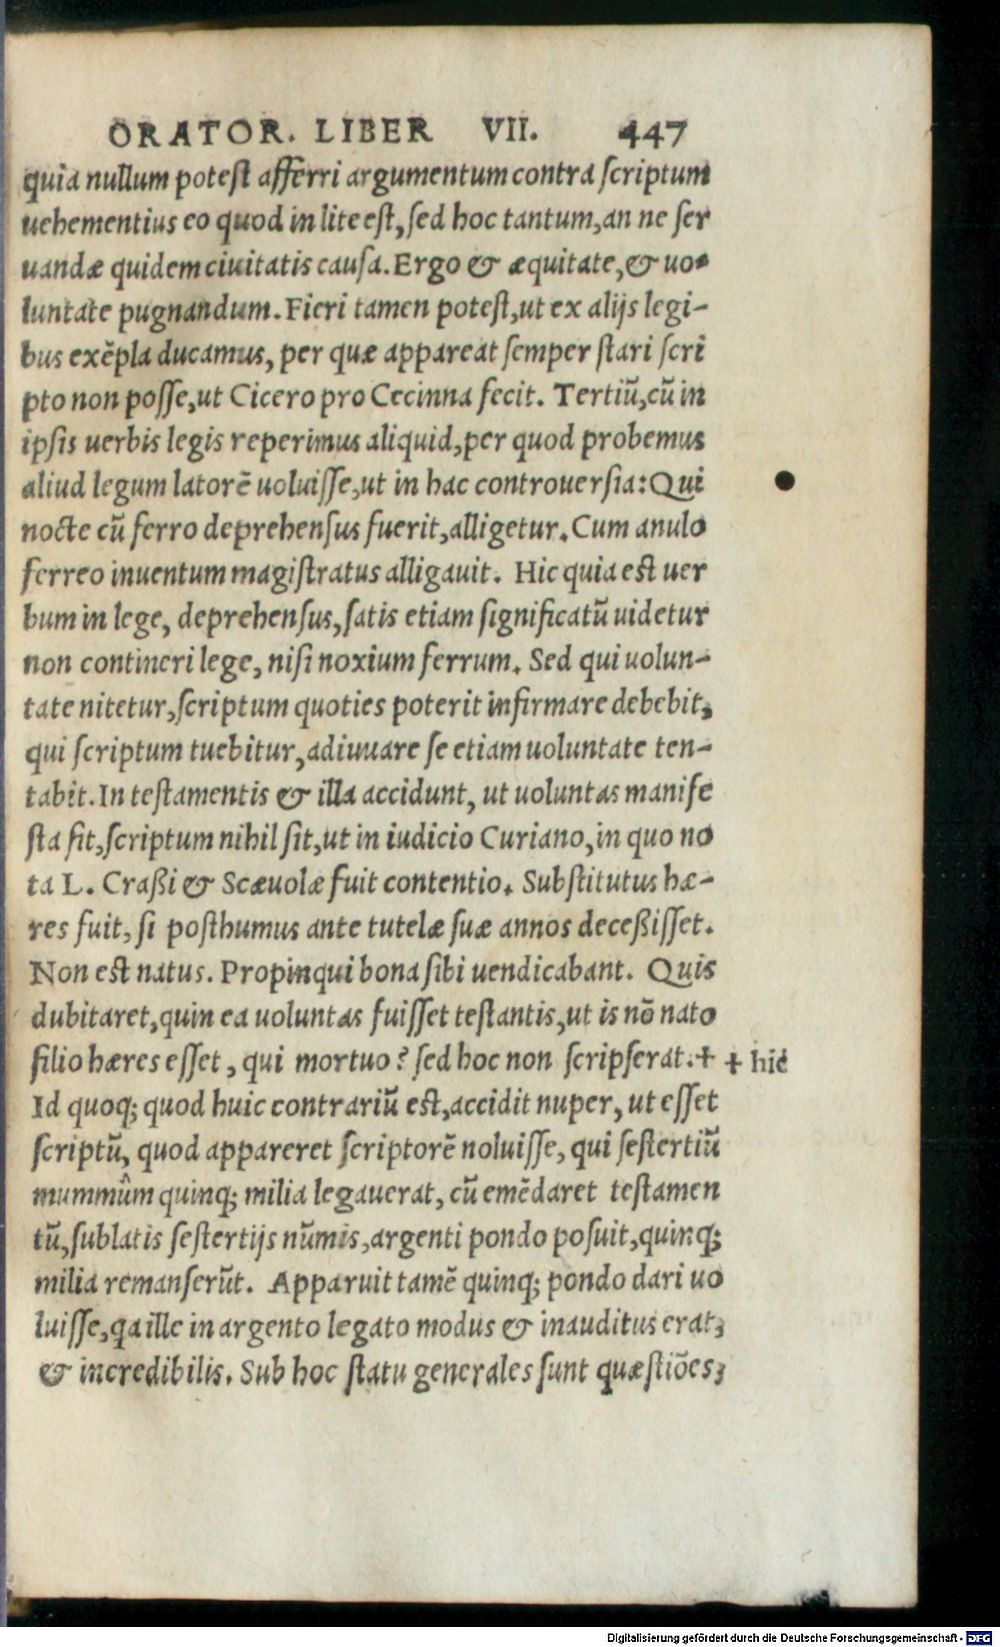 ORATOR. LIBER VII. 447
quia nullum potest afferri argumentum contra ſcriptum
uehementius eo quod in lite eſt, ſed hoc tantum, an ne ſer
uandæ quidem ciuitatis cauſa. Ergo & æquitate, & uo-
luntate pugnandum. Fieri tamen poteſt, ut ex alijs legi-
bus exẽpla ducamus, per quæ appareat ſemper ſtari ſcri
pto non poſſe, ut Cicero pro Cecinna fecit. Tertiũ, cũ in
ipſis uerbis legis reperimus aliquid, per quod probemus
aliud legum latorẽ uoluiſſe, ut in hac controuerſia: Qui
nocte cũ ferro deprehenſus fuerit, alligetur. Cum anulo
ferreo inuentum magiſtratus alligauit. Hic quia eſt uer
bum in lege, deprehenſus, ſatis etiam ſignificatũ uidetur
non contineri lege, niſi noxium ferrum. Sed qui uolun-
tate nitetur, ſcriptum quoties poterit infirmare debebit,
qui ſcriptum tuebitur, adiuuare ſe etiam uoluntate ten-
tabit. In teſtamentis & illa accidunt, ut uoluntas manife
ſta ſit, ſcriptum nihil ſit, ut in iudicio Curiano, in quo no
ta L. Craßi & Scæuolæ fuit contentio. Subſtitutus hæ-
res fuit, ſi poſthumus ante tutelæ ſuæ annos deceßiſſet.
Non eſt natus. Propinqui bona ſibi uendicabant. Quis
dubitaret, quin ea uoluntas fuiſſet teſtantis, ut is nõ nato
filio hæres eſſet, qui mortuo? ſed hoc non ſcripſerat. + + hic
Id quoq; quod huic contrariũ eſt, accidit nuper, ut eſſet
ſcriptũ, quod appareret ſcriptorẽ noluiſſe, qui ſeſtertiũ
mummûm quinq; milia legauerat, cũ emẽdaret teſtamen
tũ, ſublatis ſeſtertijs nũmis, argenti pondo poſuit, quinq;
milia remanſerũt. Apparuit tamẽ quinq; pondo dari uo
luiſſe, qa ille in argento legato modus & inauditus erat,
& incredibilis. Sub hoc ſtatu generales ſunt quæſtiões,
Digitalisierung gefördert durch die Deutsche Forschungsgemeinschaft - DFG